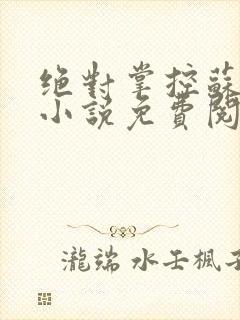 绝對掌控蘇
小說免費閱
瀧端 水壬楓子